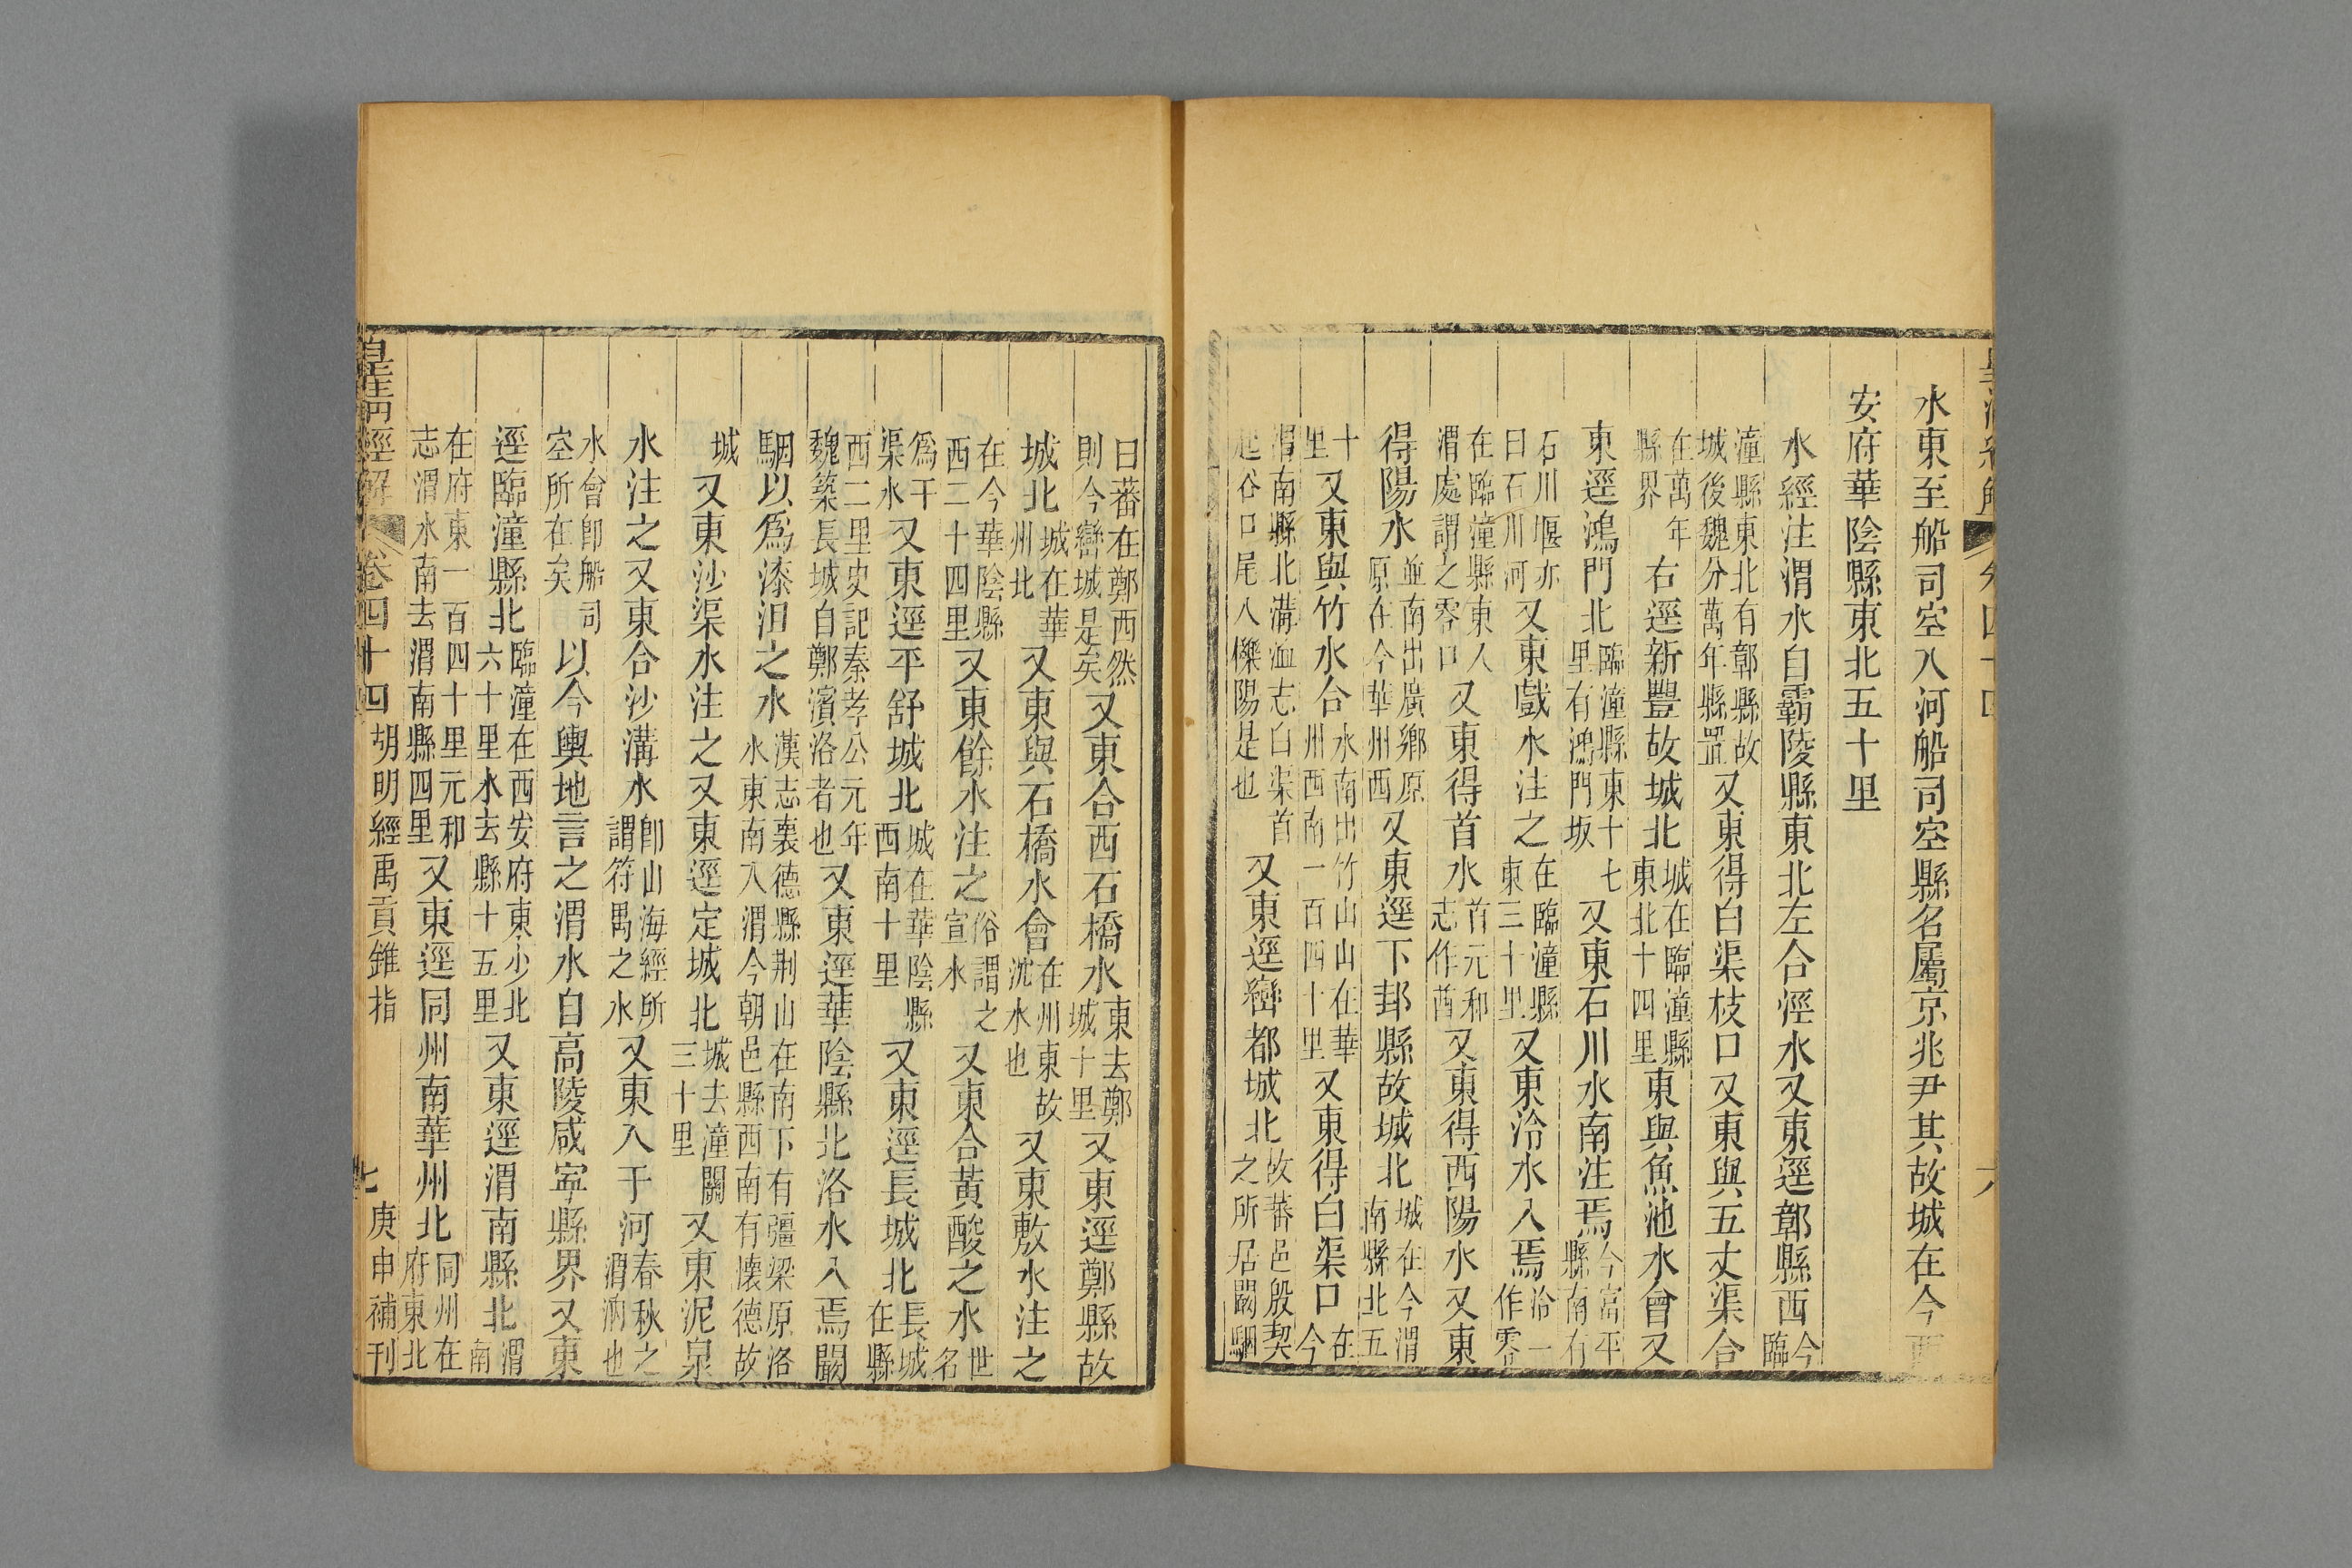 水東至船司空入河船司空縣名屬京兆尹其故城在今西
安府華陰縣東北五十里
水經注渭水自霸陵縣東北左合涇水又東逕鄣縣西今臨
潼縣東北有鄣縣故城後魏分萬年縣置又東得白渠枝口又東與五丈渠合
在萬年縣界右逕新豐故城北城在臨潼縣東北十四里東與魚池水會又
東逕鴻門北臨潼縣東十七里有鴻門坂又東石川水南注焉今富平縣南有
石川堰亦曰石川河又東戲水注之在臨潼縣東三十里又東泠水入焉泠一作零
在臨潼縣東入渭處謂之零口又東得首水首元和志作酋又東得西陽水又東
得陽水並南出廣鄉原原在今華州西又東逕下邽縣故城北城在今渭南縣北五
十里又東與竹水合水南出竹山山在華州西南一百四十里又東得白渠口在今
渭南縣北溝洫志白渠首起谷口尾入櫟陽是也又東逕巒都城北故蕃邑殷契之所居闞駰
曰蕃在鄭西然則今巒城是矣又東合西石橋水東去鄭城十里又東逕鄭縣故
城北城在華州北又東與石橋水會在州東故沈水也又東敷水注之
在今華陰縣西二十四里又東餘水注之俗謂之宣水又東合黃酸之水世名
爲千渠水又東逕平舒城北城在華陰縣西南十里又東逕長城北長城在縣
西二里史記秦孝公元年魏築長城自鄭濱洛者也又東逕華陰縣北洛水入焉闞
駰以爲漆沮之水漢志襄德縣荆山在南下有彊梁原洛水東南入渭今朝邑縣西南有懷德故
城又東沙渠水注之又東逕定城北城去潼關三十里又東泥泉
水注之又東合沙溝水卽山海經所謂符禺之水又東入于河春秋之渭汭也
水會卽船司空所在矣以今輿地言之渭水自高陵咸寧縣界又東
逕臨潼縣北臨潼在西安府東少北六十里水去縣十五里又東逕渭南縣北渭南
在府東一百四十里元和志渭水南去渭南縣四里又東逕同州南華州北同州在府東北
皇淸經解 卷四十四 胡明經禹貢錐指 七 庚申補刊